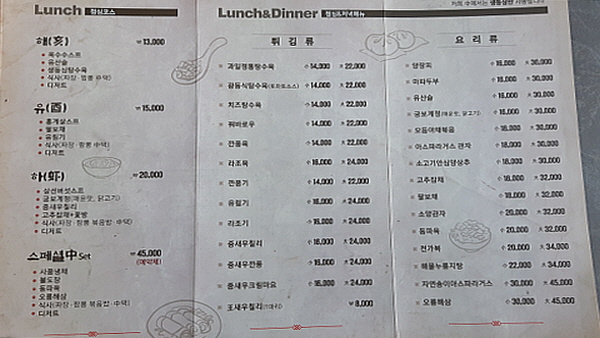 Lunch 점심코스
해(亥) ₩13,000
옥수수스프
유산슬
생등심탕수육
식사(짜장·짬뽕 中택)
디저트
유(酉) ₩15,000
홍게살스프
팔보채
유림기
식사(짜장·짬뽕 中택)
디저트
하(虾) ₩20,000
삼선버섯스프
궁보계정(매운맛, 닭고기)
중새우칠리
고추잡채+꽃빵
식사(짜장·짬뽕·볶음밥·中택)
디저트
스페셜中Set ₩45,000
(예약제)
사품냉채
불도장
동파육
오룡해삼
식사(짜장·짬뽕·볶음밥·中택)
디저트
Lunch&Dinner 점심&저녁메뉴
튀 김 류
과일정통탕수육 小14,000 大22,000
광동식탕수육(토마토소스) 小14,000 大22,000
치즈탕수육 小14,000 大24,000
꿔바로우 小14,000 大22,000
깐풍육 小14,000 大22,000
라조육 小16,000 大24,000
깐풍기 小14,000 大22,000
유림기 小16,000 大24,000
라조기 小16,000 大24,000
중새우칠리 小16,000 大24,000
중새우깐풍 小16,000 大24,000
중새우크림마요 小16,000 大24,000
王새우칠리(1마리) ₩8,000
저희 中에서는 생등심만 사용합니다
요 리 류
양장피 小16,000 大30,000
마파두부 小16,000 大30,000
유산슬 小16,000 大30,000
궁보계정(매운맛, 닭고기) 小16,000 大30,000
모듬야채볶음 小16,000 大30,000
아스파라거스 관자 小16,000 大30,000
소고기안심양상추 小16,000 大30,000
고추잡채 小16,000 大30,000
팔보채 小18,000 大32,000
소양관자 小20,000 大32,000
동파육 小20,000 大32,000
전가복 小20,000 大34,000
해물누룽지탕 小22,000 大34,000
자연송이아스파라거스 小30,000 大45,000
오룡해삼 小30,000 大45,000